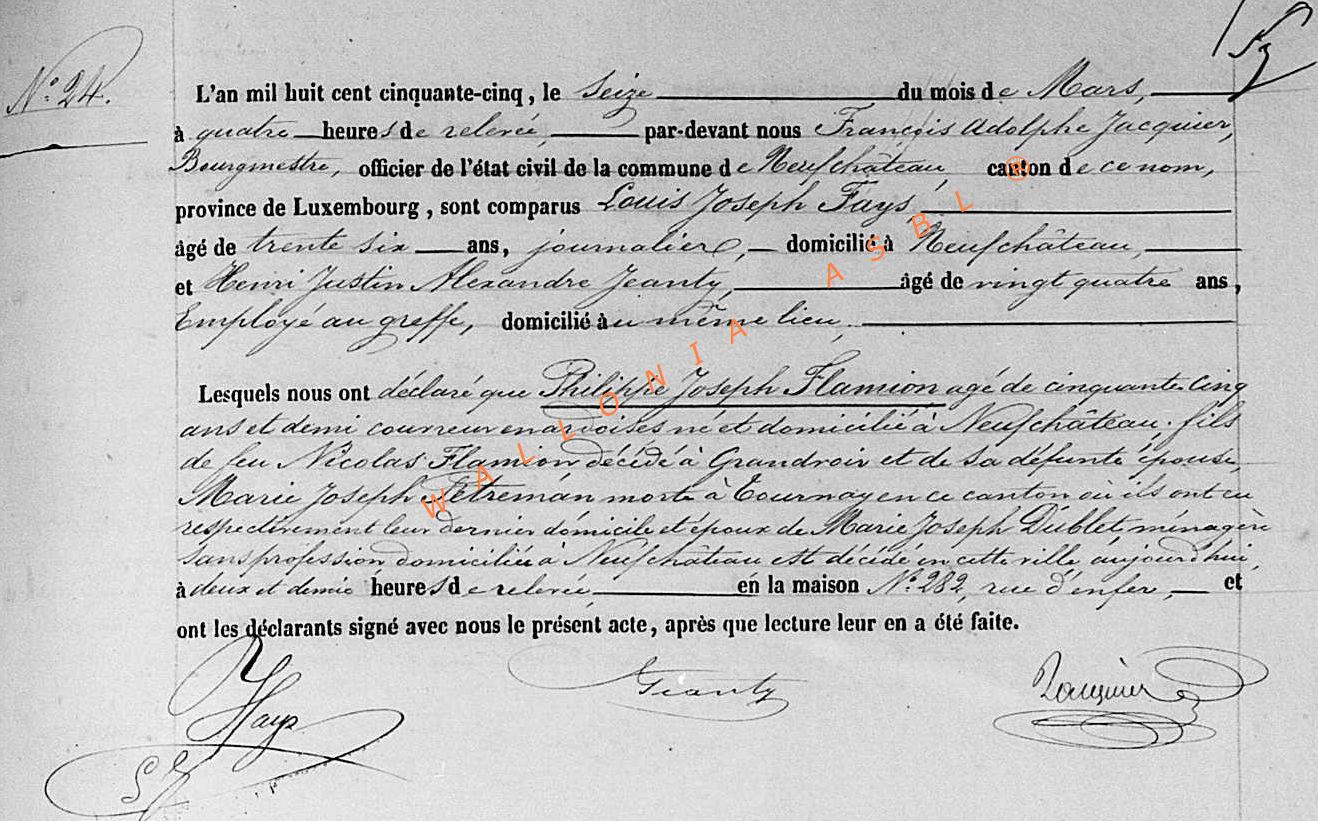 N° 24.
L'an mil huit cent cinquante-cinq, le Seize du mois de Mars,
à quatre heures de relevée, par-devant nous François Adolphe Jacquier,
Bourgmestre, officier de l'état civil de la commune de Neufchâteau, canton de ce nom,
province de Luxembourg, sont comparus Louis Joseph Fays,
âgé de trente six ans, journalier, domicilié à Neufchâteau,
et Henri Justin Alexandre Jeanty, âgé de vingt quatre ans,
Employé au greffe, domicilié au même lieu,
Lesquels nous ont déclaré que Philippe Joseph Flamion agé de cinquante cinq
ans et demi couvreur en ardoises né et domicilié à Neufchâteau, fils
de feu Nicolas Flamion décédé à Grandvoir et de sa défunte épouse,
Marie Joseph morte à Tournay en ce canton où ils ont eu
respectivement leur dernier domicile et époux de Marie Joseph Dublet, ménagère
sans profession domiciliée à Neufchâteau est décédé en cette ville aujourd'hui,
à deux et demie heures de relevée, en la maison N° 282, rue d'enfer, et
ont les déclarants signé avec nous le présent acte, après que lecture leur en a été faite.
Fays Jeanty Jacquier
WALLONIA ASBL ®